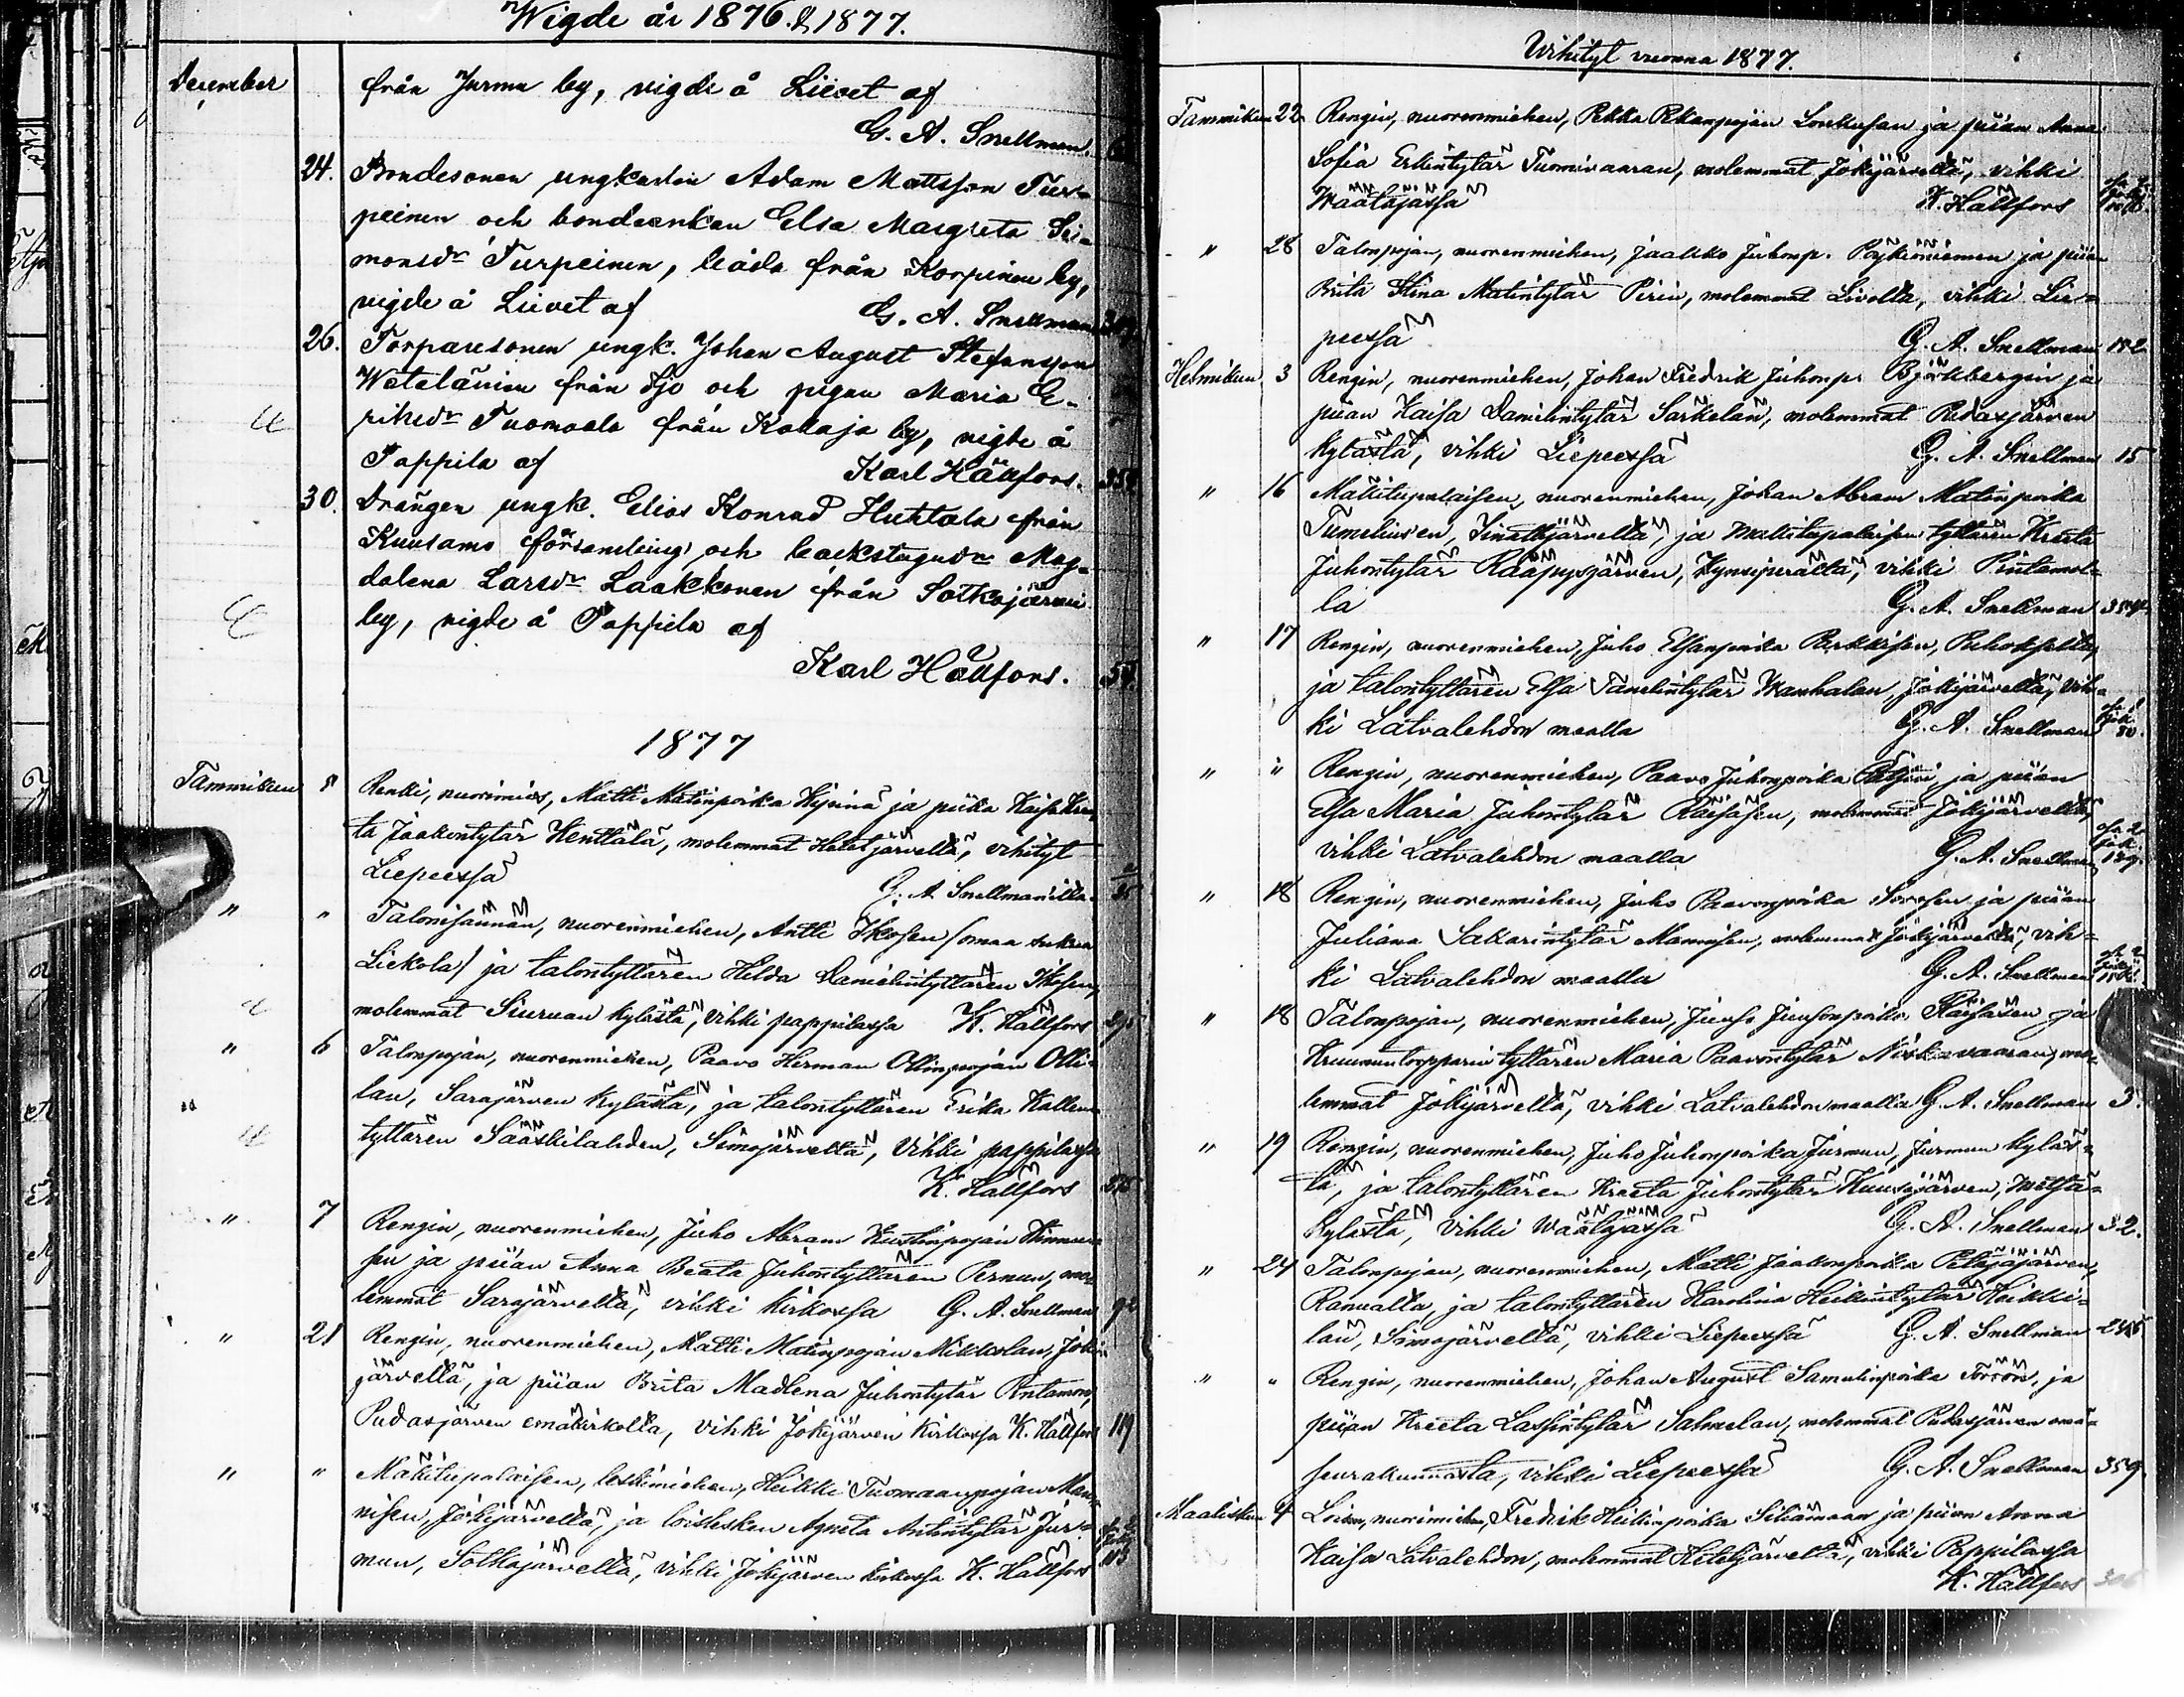 Wigde år 1876 & 1877.
December
från Jurmu by, vigde å Liivet af
G. A. Snellman.
24. Bondesonen ungkarlen Adam Mattsson Tur-
peinen och bondeenkan Elsa Margreta Si-
monsdr Turpeinen, båda från Korpinen by,
vigde å Liivet af G. A. Snellman
26. Torparesonen ungk. Johan August Stefansson
Wetelänien från Ijo och pigan Maria E-
riksdr Tuomaala från Kollaja by, vigde å
Pappila af Karl Hällfors. 352
30. Drängen ungk. Elias Konrad Huhtala från
Kuusamo församling och backstugudr Mag-
dalena Larsdr Laakkonen från Sotkajärvi
by, vigde å Pappila af
Karl Hällfors. 54.
1877
Tammikuu 5 Renki, nuorimies, Matti Matinpoika ja piika Kaisa Kree-
ta Jaakontytär Henttala, molemmat Hetejärveltä, vihityt
Liepeessä G. A. Snellmanilta
" " Talonisännän, nuorenmiehen, Antti Ikosen (omaa sukua
Liekola) ja talontyttären Hilda Danielintyttären Ikosen,
molemmat Siuruan kylästä, vihki pappilassa K. Hällfors
" 6 Talonpojan, nuorenmiehen, Paavo Herman Ollinpojan Olli-
lan, Sarajärven kylästä, ja talontyttären Erika Kallen
tyttären Sääskilahden, Simojärveltä, vihki pappilassa
K. Hällfors
" 7 Rengin, nuorenmiehen, Juho Abram Kustinpojan
sen ja piian Anna Beata Juhontyttären Pernun, mo-
lemmat Sarajärveltä, vihki kirkossa G. A. Snellman
" 21 Rengin, nuorenmiehen, Matti Matinpojan Mikkolan, Joki-
järveltä, ja piian Brita Madlena Juhontytär Rintamon,
Pudasjärven emäkirkolta, vihki Jokijärven kirkossa K. Hällfors 119
" " Mäkitupalaisen, leskimiehen, Heikki Tuomaanpojan Man-
nisen, Jokijärveltä, ja loislesken Agneta Antintytär Jur-
mun, Sotkajärveltä, vihki Jokijärven kirkossa K. Hällfors
Vihityt vuonna 1877.
Tammikuu 22 Rengin, nuorenmiehen, Pekka Pekanpojan Loukusan ja piian Anna
Sofia Erkintytär Tuomivaaran, molemmat Jokijärveltä, vihki
Wäätäjässä K. Hällfors
" 28 Talonpojan, nuorenmiehen, Jaakko Juhonp. Pöykiöniemen ja piian
Brita Stina Matintytär Pirin, molemmat Livolta, vihki Lie-
peessä G. A. Snellman 182
Helmikuu 3 Rengin, nuorenmiehen, Johan Fredrik Juhonp. Björkbergin ja
piian Kaisa Danielintytär Särkelän, molemmat Pudasjärven
kylästä, vihki Liepeessä G. A. Snellman 15
" 16 Mäkitupalaisen, nuorenmiehen, Johan Abram Matinpoika
Tumeliusen, Iinattijärveltä, ja mäkitupalaisen tyttären Kreeta
Juhontytär Rääpysjärven, Kynsiperältä, vihki Rintamol-
la G. A. Snellman
" 17 Rengin, nuorenmiehen, Juho Elsanpoika Parkkisen, Puhokselta,
ja talontyttären Elsa Tanelintytär Wanhalan, Jokijärveltä, vih-
ki Latvalehdon maalla G. A. Snellman
" " Rengin, nuorenmiehen, Paavo Juhonpoika ja piian
Elsa Maria Juhontytär Räisäsen, molemmat Jokijärveltä,
vihki Latvalehdon maalla G. A. Snellman
" 18 Rengin, nuorenmiehen, Juho Paavonpoika Sorosen ja piian
Juliana Sakarintytär Mannisen, molemmat Jokijärveltä, vih-
ki Latvalehdon maalla G. A. Snellman
" 18 Talonpojan, nuorenmiehen, Juuso Juusonpoika Räisäsen ja
Kruununtorpparin tyttären Maria Paavontytär Niskavaaran, mo-
lemmat Jokijärveltä, vihki Latvalehdon maalla G. A. Snellman 3.
" 19 Rengin, nuorenmiehen, Juho Juhonpoika Jurmun, Jurmun kyläs-
tä, ja talontyttären Kreeta Juhontytär Kuusijärven, Metsä-
kylästä, vihki Wäätäjässä G. A. Snellman 32.
" 24 Talonpojan, nuorenmiehen, Matti Jaakonpoika Petäjäjärven,
Ranualta, ja talontyttären Karolina Heikintytär Heikki-
län, Simojärveltä, vihki Liepeessä G. A. Snellman
" " Rengin, nuorenmiehen, Johan August Samulinpoika Törrön, ja
piian Kreeta Lassintytär Salmelan, molemmat Pudasjärven emä-
seurakunnasta, vihki Liepeessä G. A. Snellman 359.
Maaliskuu 4 Loisen, nuorimiehen, Fredrik Heikinpoika Siliämaan ja piian Anna
Kaisa Latvalehdon, molemmat Hetejärveltä, vihki Pappilassa
K. Hällfors